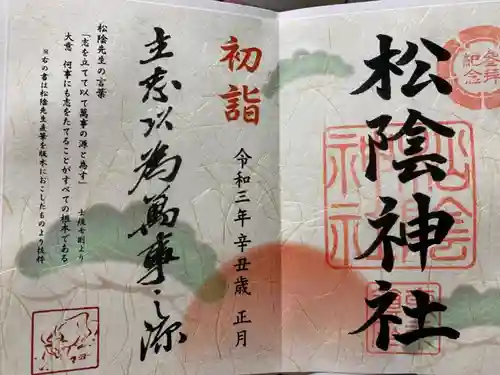 参拝
記念
松陰神社
松陰神社
初詣
令和三年 辛丑歳 正月
立志以為萬事之源
松陰先生の言葉
「志を立てて以て萬事の源と為す」
士規七則より
大意 何事にも志をたてることがすべての根本である
※右の書は松陰先生直筆を版木におこしたものより抜粋